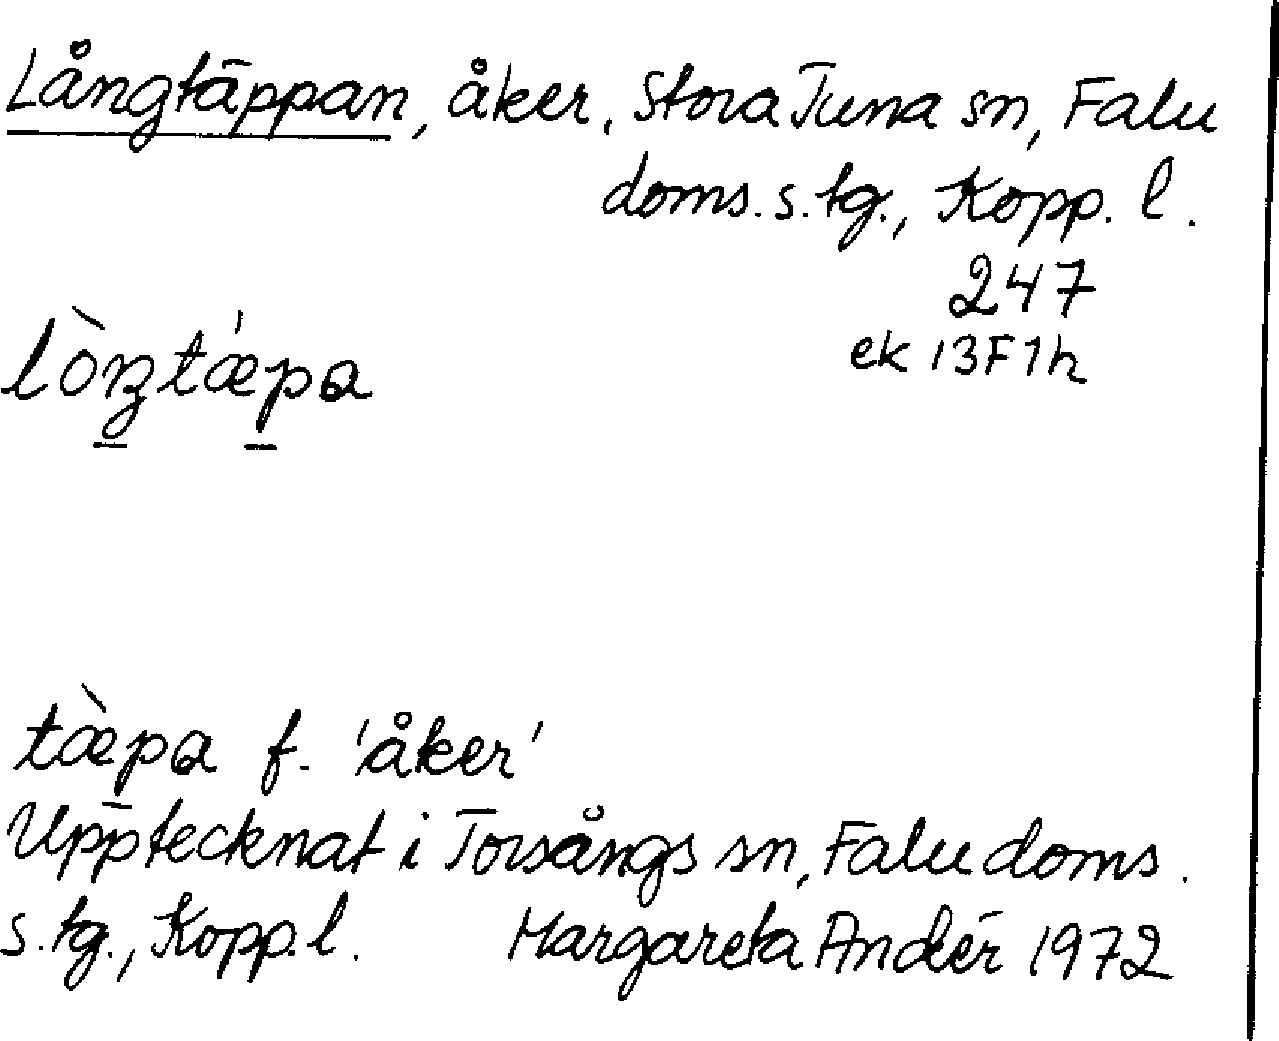 Långtäppan, åker, Stora Tuna sn, Falu
doms.s.tg., Kopp. l.
247
ek 13F1h
lòŋtǽpa
tæ̀pa f. 'åker'
Upptecknat i Torsångs sn, Falu doms.
s.tg., Kopp.l. Margareta Andér 1972